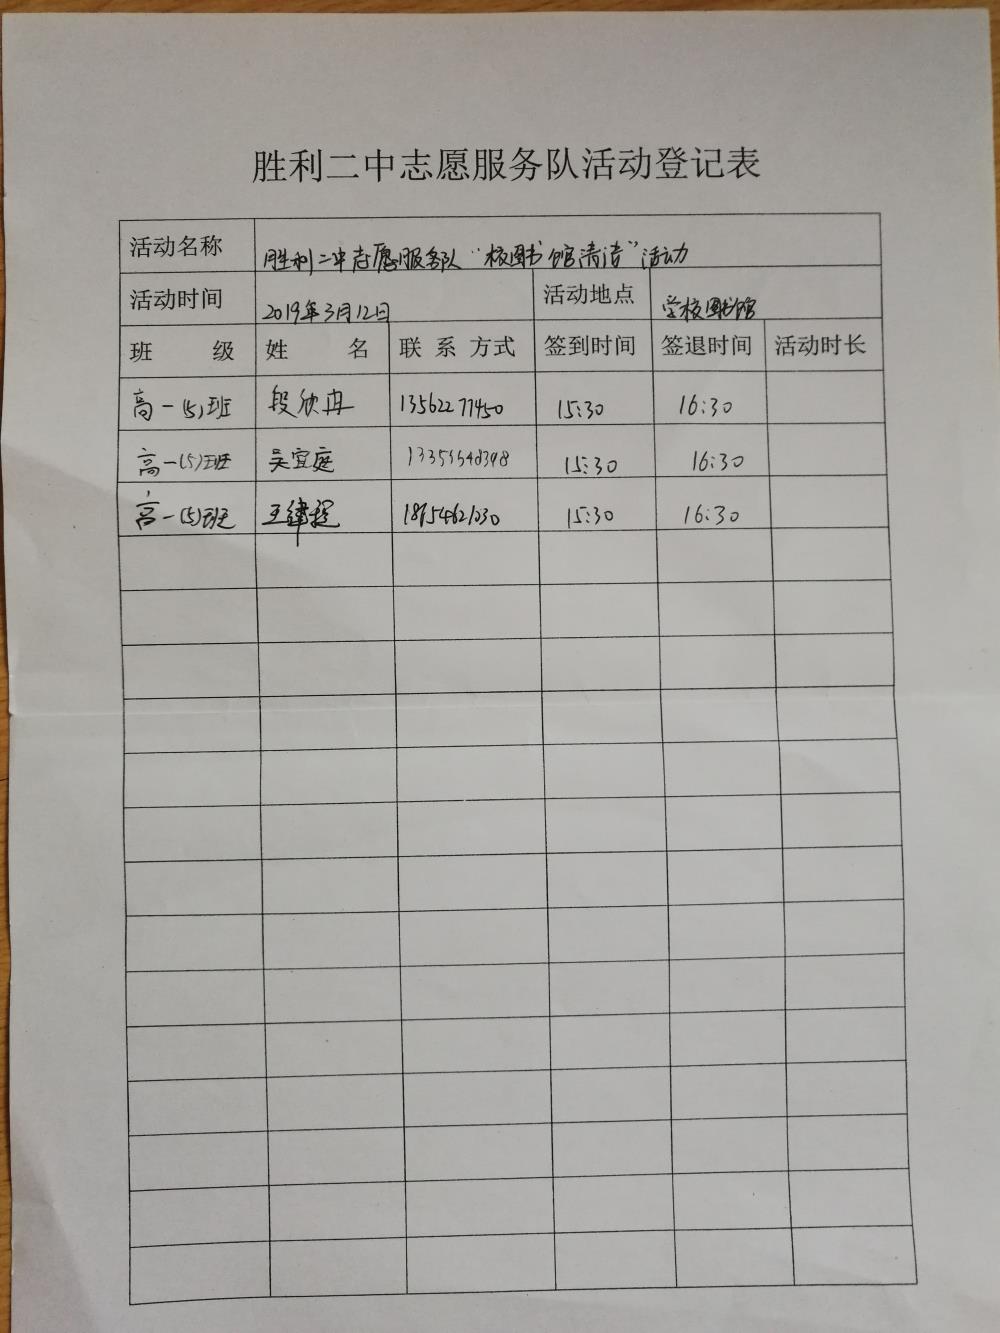 胜利二中志愿服务队活动登记表
活动名称 胜利二中志愿服务队“校图书馆清洁”活动
活动时间 2019年3月12日 活动地点 学校图书馆
班 级 姓 名 联 系 方式 签到时间 签退时间 活动时长
高一(5)班 段欣冉 13562277450 15:30 16:30
高一(5)班 吴宜庭 15:30 16:30
高一(5)班 15:30 16:30